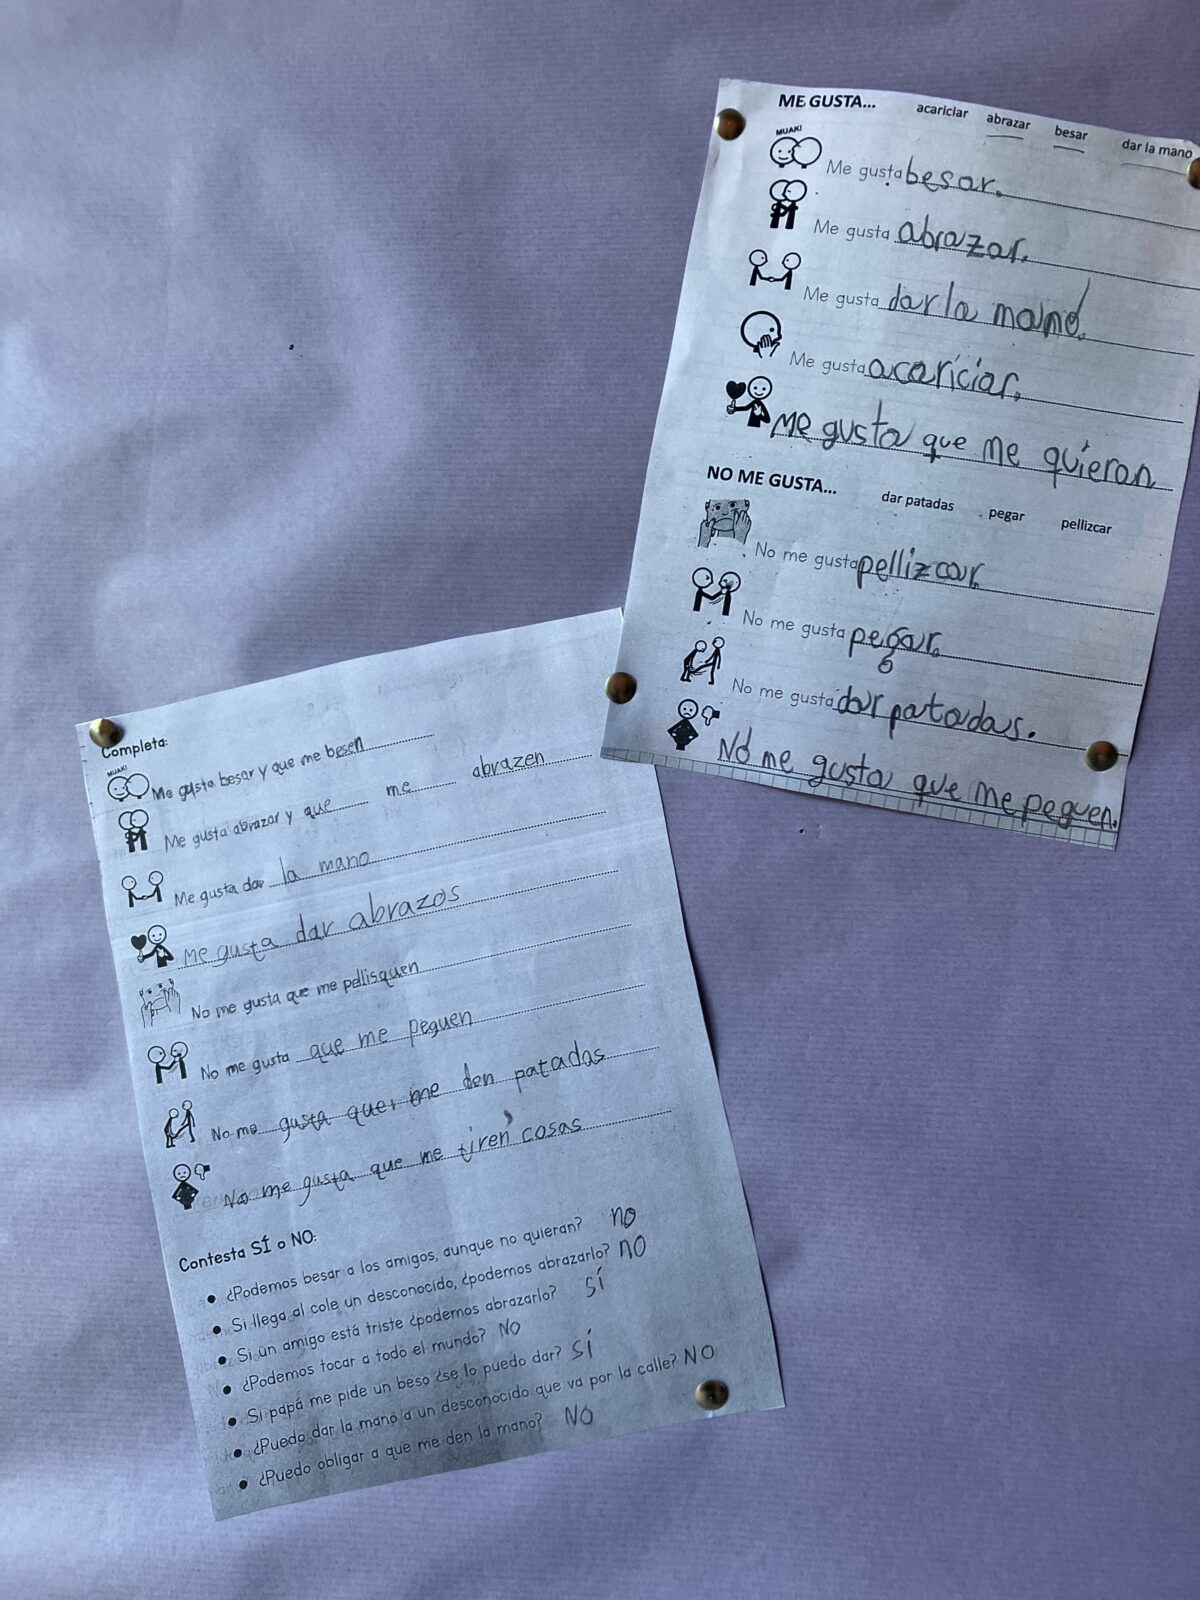 ME GUSTA... acariciar abrazar besar dar la mano
MUAK!
Me gusta besar.
Me gusta abrazar.
Me gusta dar la mano.
Me gusta acariciar.
Me gusta que me quieran
NO ME GUSTA... dar patadas pegar pellizcar
No me gusta pellizcar.
No me gusta pegar.
No me gusta dar patadas.
No me gusta que me peguen.
Completa:
MUAK!
Me gusta besar y que me besen
Me gusta abrazar y que me abrazen
Me gusta dar la mano
Me gusta dar abrazos
No me gusta que me pellisquen
No me gusta que me peguen
No me gusta que me den patadas
No me gusta que me tiren cosas
Contesta SÍ o NO:
• ¿Podemos besar a los amigos, aunque no quieran? no
• Si llega al cole un desconocido, ¿podemos abrazarlo? NO
• Si un amigo está triste ¿podemos abrazarlo? SÍ
• ¿Podemos tocar a todo el mundo? NO
• Si papá me pide un beso ¿se lo puedo dar? SÍ
• ¿Puedo dar la mano a un desconocido que va por la calle? NO
• ¿Puedo obligar a que me den la mano? NO